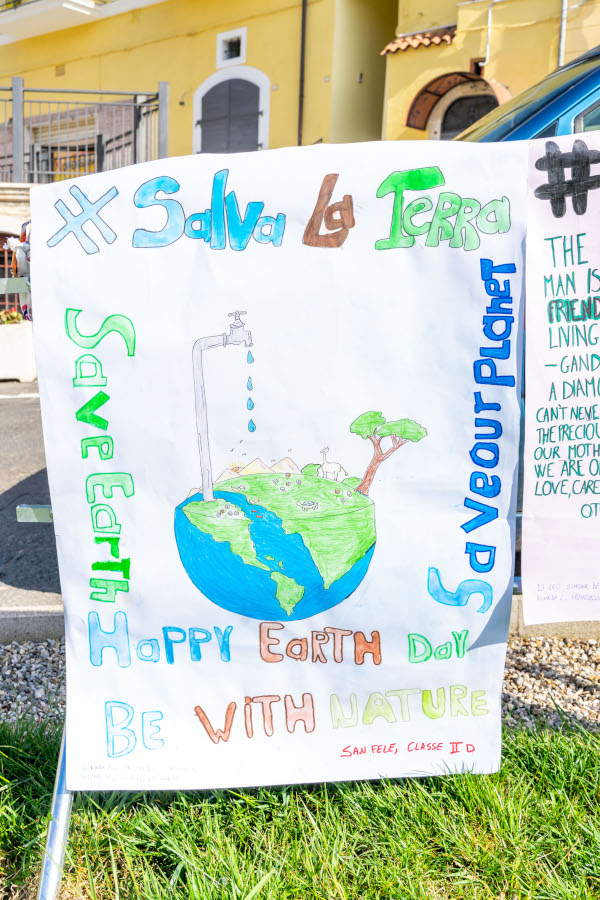 # Salva La Terra
Save Earth
Save our planet
Happy Earth Day
Be With Nature
San Fele, Classe II D
#
THE
MAN IS
FRIEND
LIVING
– GAND
A DIAMO
CAN'T NEVE
THE PRECIOU
OUR MOTH
WE ARE O
LOVE, CARE
OT